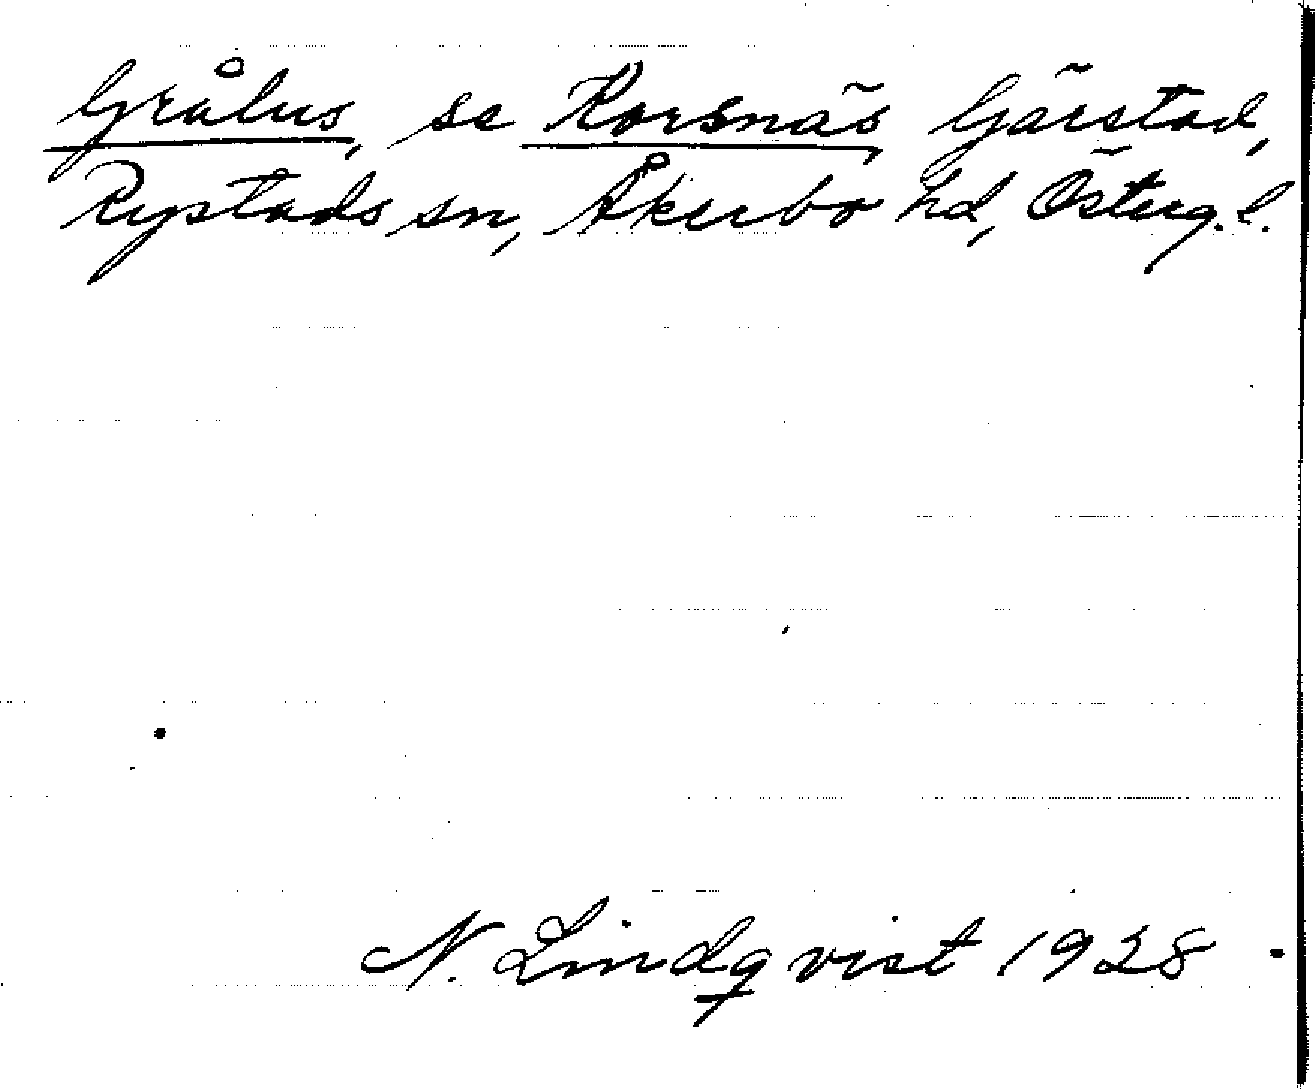 Grålus, se Korsnäs Gärstad,
Rystads sn, Åkerbo hd, Österg. l.
N. Lindqvist 1928